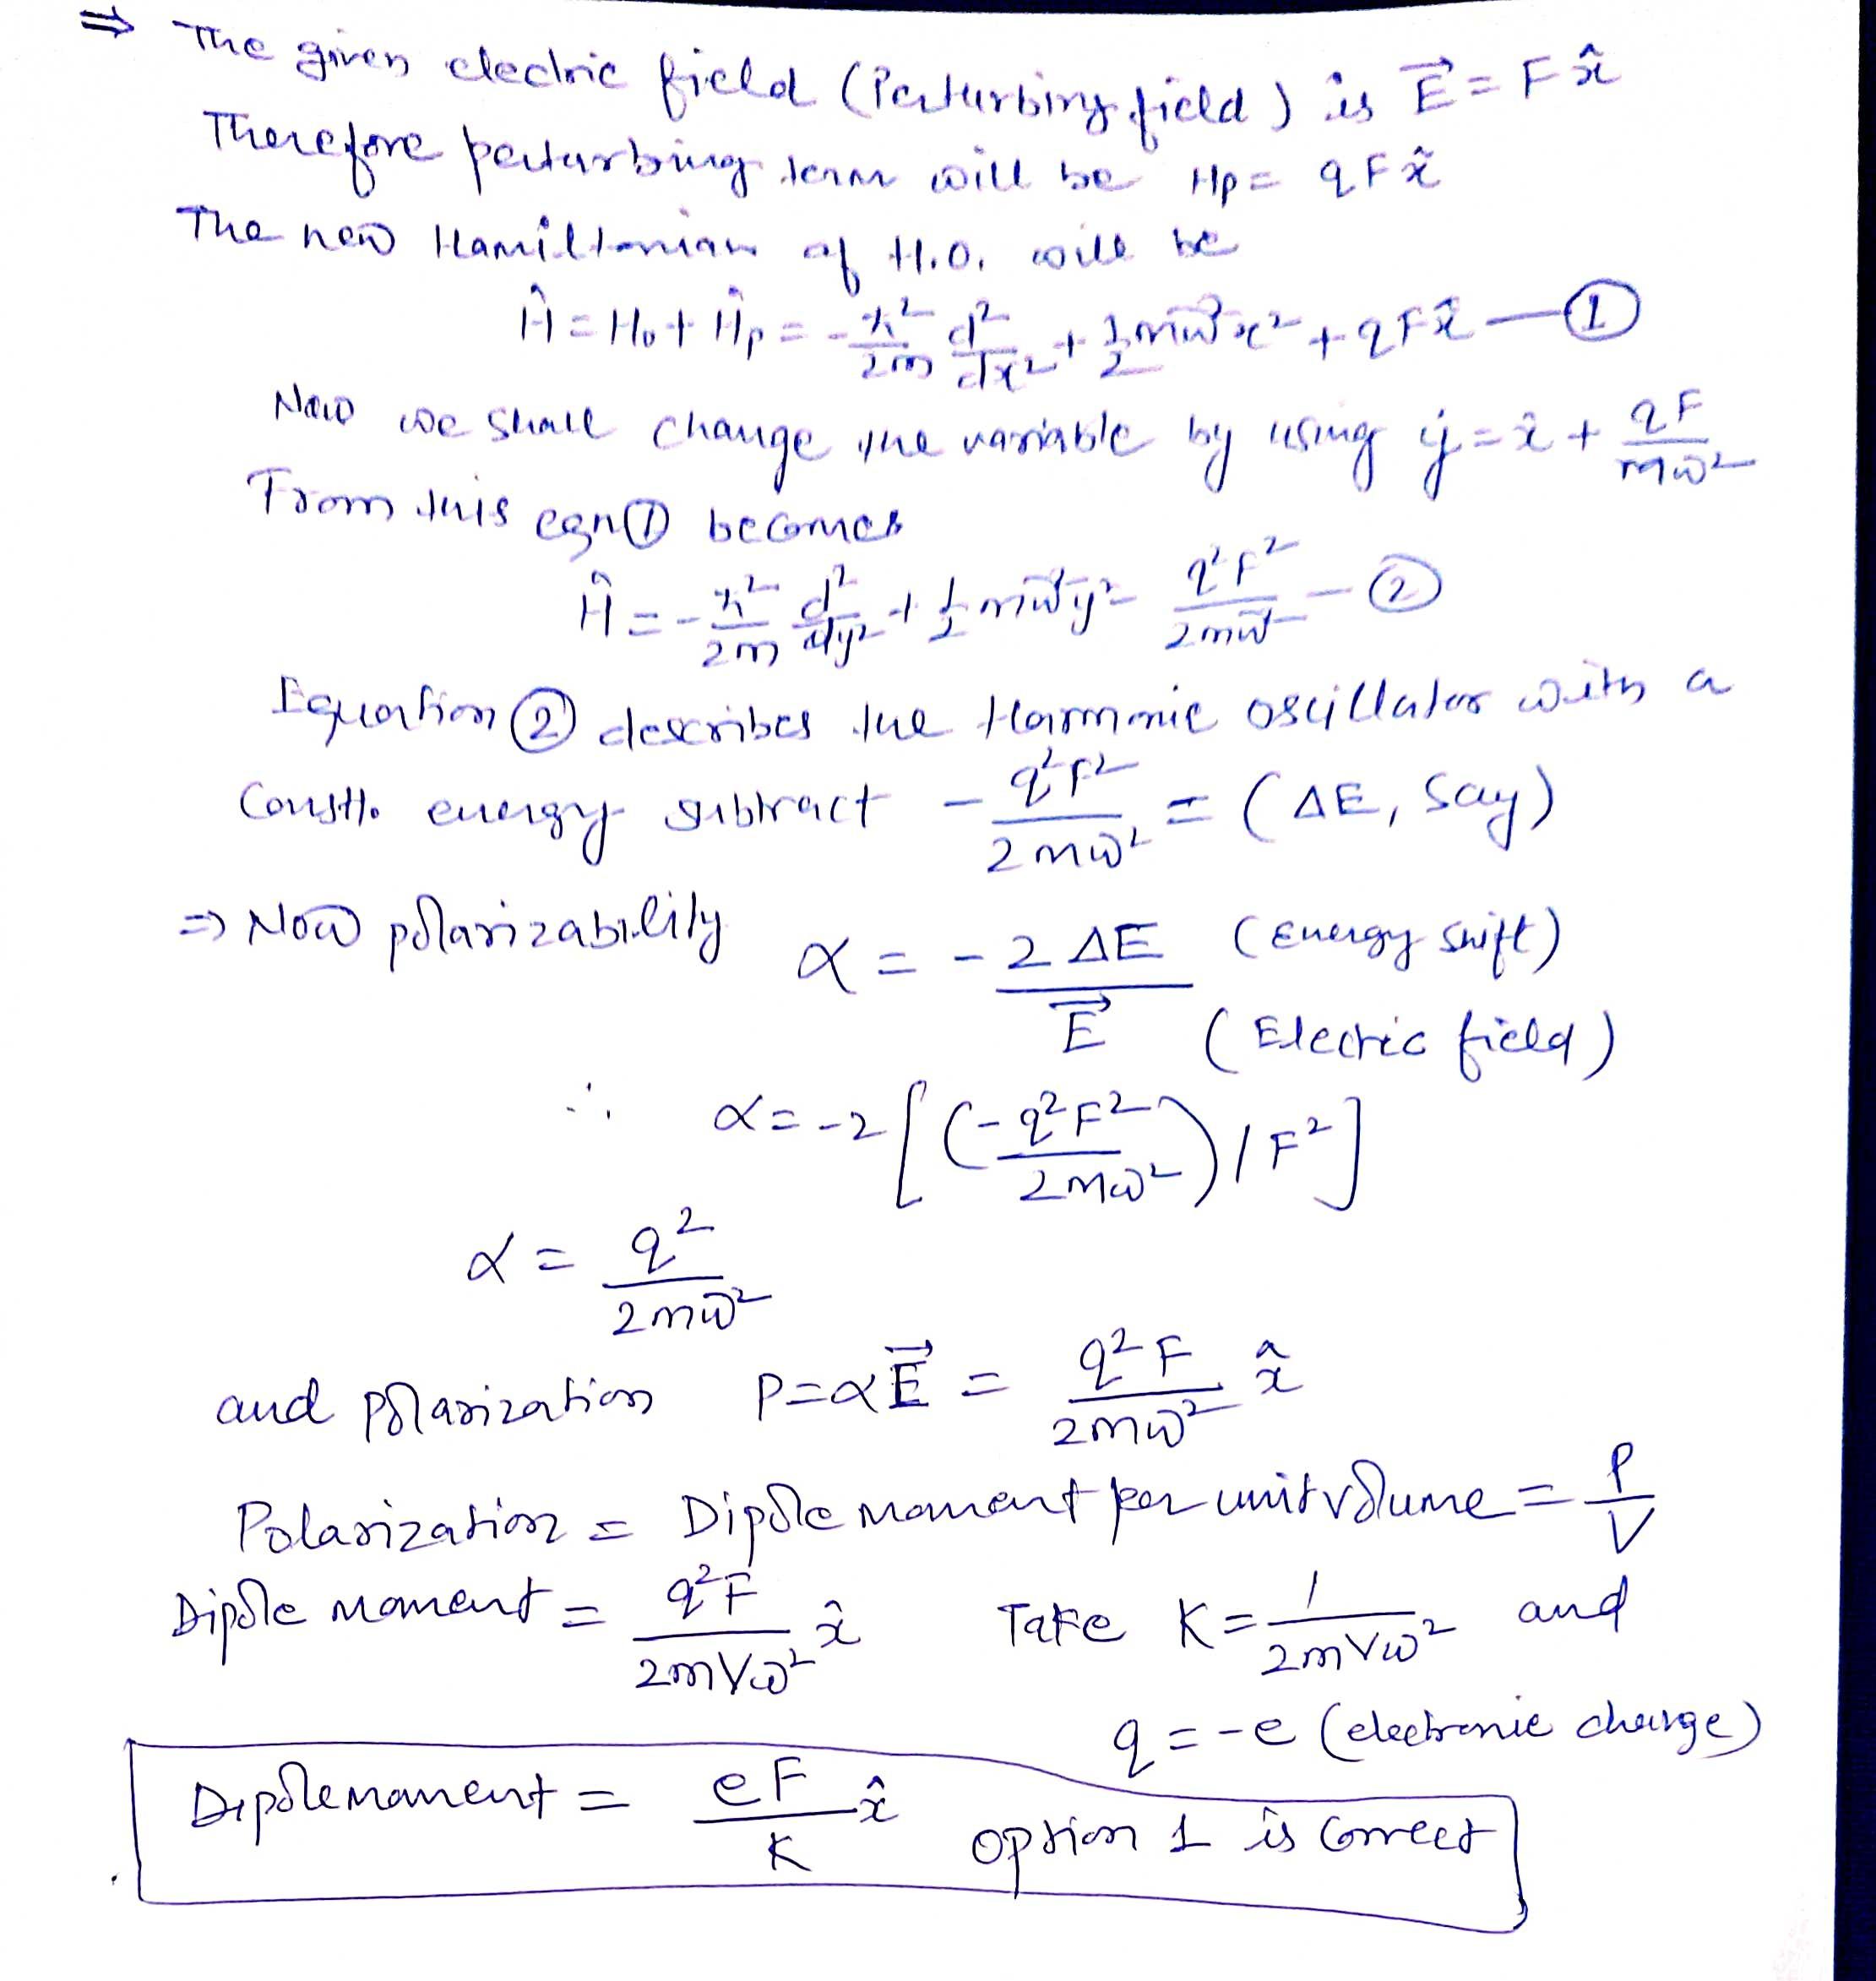 ⇒ The given electric field (Perturbing field) is E⃗ = F x̂
Therefore perturbing term will be Hp = qFx̂
The new Hamiltonian of H.O. will be
Ĥ = H₀ + Ĥp = -ħ²/2m d²/dx² + 1/2 mω²x² + qFx̂ — ①
Now we shall change the variable by using ŷ = x̂ + qF/mω²
From this eqn ① becomes
Ĥ = -ħ²/2m d²/dy² + 1/2 mω²y² - q²F²/2mω² — ②
Equation ② describes the Harmonic oscillator with a
Constt. energy subtract - q²F²/2mω² = (ΔE, say)
⇒ Now polarizability α = -2 ΔE (Energy shift) / E⃗ (Electric field)
∴ α = -2 [(-q²F²/2mω²) / F²]
α = q²/2mω²
and polarization P = αE⃗ = q²F/2mω² x̂
Polarization = Dipole moment per unit volume = P/V
Dipole moment = q²F/2mVω² x̂ Take K = 1/2mVω² and
q = -e (electronic charge)
Dipole moment = eF/K x̂ option 1 is correct